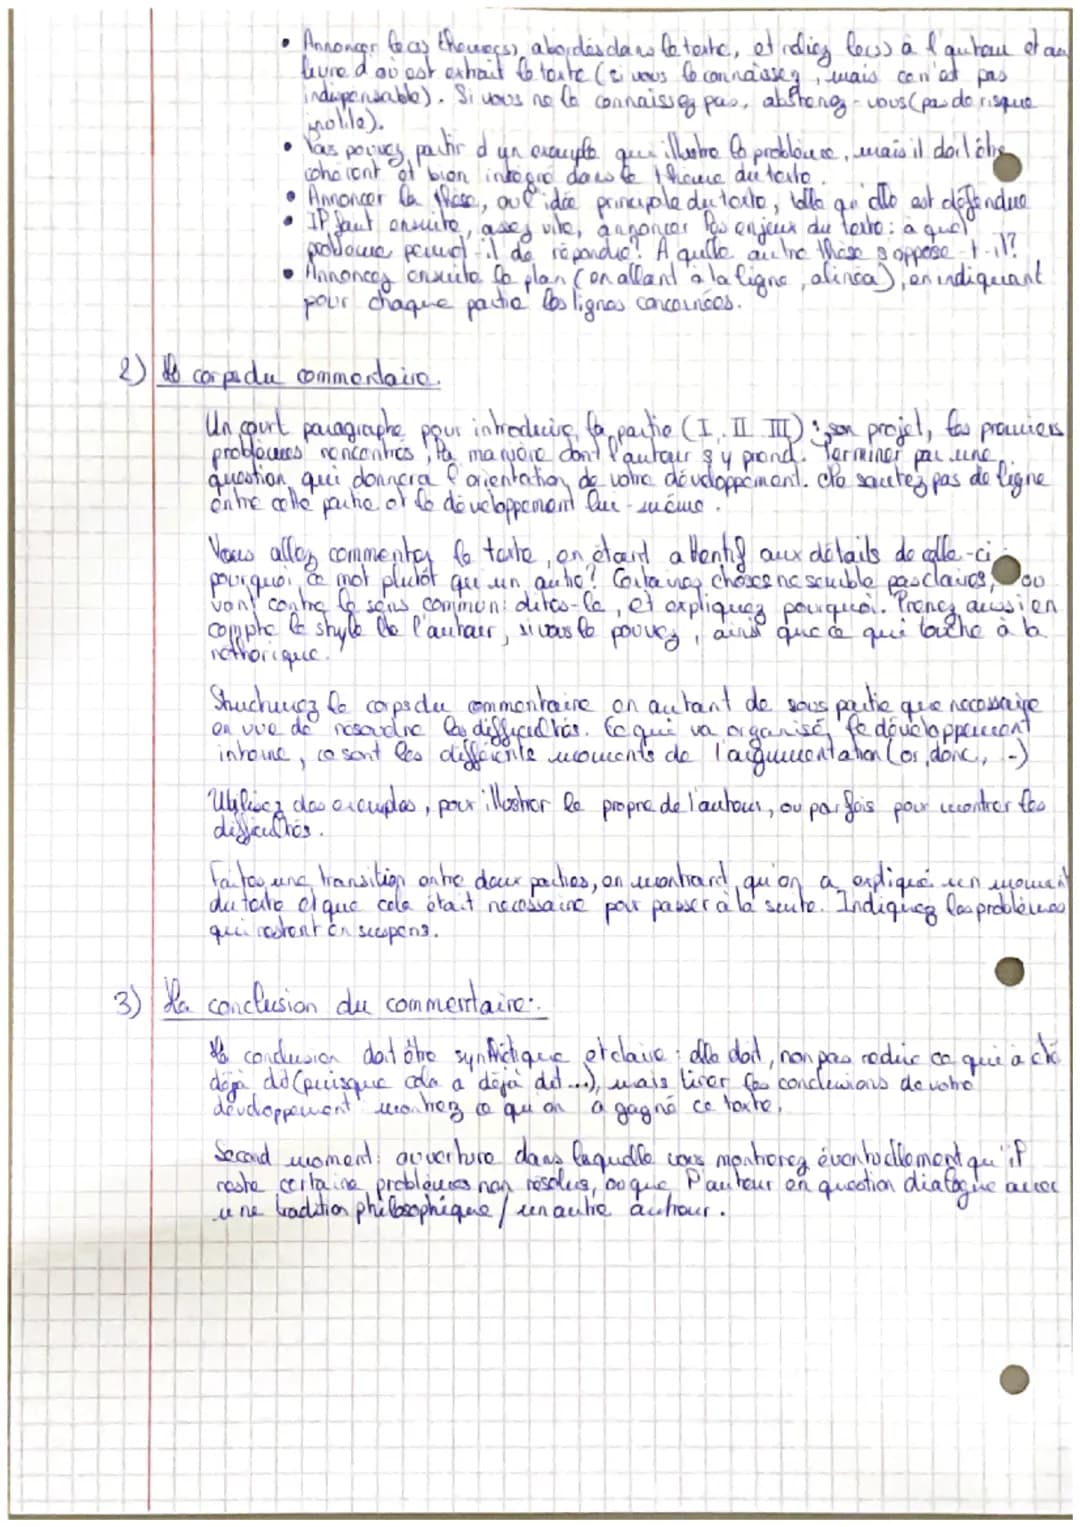 • Annoncer le(s) thème(s), abordés dans le texte, et reliez le(s) à l'auteur et au
livre d'où est extrait le texte (si vous le connaissez, mais ce n'est pas
indispensable). Si vous ne le connaissez pas, abstenez-vous (pas de risque
inutile).
• Vous pouvez partir d'un exemple qui illustre le problème, mais il doit être
cohérent et bien intégré dans le thème du texte.
• Annoncer la thèse, ou l'idée principale du texte, telle qu'elle est défendue
• Il faut ensuite, assez vite, annoncer les enjeux du texte: à quel
problème permet-il de répondre? À quelle autre thèse s'oppose-t-il?
• Annoncez ensuite le plan (en allant à la ligne, alinéa), en indiquant
pour chaque partie les lignes concernées.
2) Le corps du commentaire.
Un court paragraphe pour introduire la partie (I, II III): son projet, les premiers
problèmes rencontrés, la manière dont l'auteur s'y prend. Terminer par une
question qui donnera l'orientation de votre développement. Ne sautez pas de ligne
entre cette partie et le développement lui-même.
Vous allez commenter le texte, en étant attentif aux détails de celle-ci
pourquoi ce mot plutôt qu'un autre? Certaines choses ne semble pas claires, ou
vont contre le sens commun: dites-le, et expliquez pourquoi. Prenez aussi en
compte le style de l'auteur, si vous le pouvez, ainsi que ce qui touche à la
réthorique.
Structurez le corps du commentaire en autant de sous partie que nécessaire
en vue de résoudre les difficultés. Ce qui va organisé, le développement
interne, ce sont les différents moments de l'argumentation (or, donc, ...)
Utilisez des exemples, pour illustrer le propre de l'auteur, ou parfois pour montrer les
difficultés.
Faites une transition entre deux parties, en montrant qu'on a expliqué un moment
du texte et que cela était nécessaire pour passer à la suite. Indiquez les problèmes
qui restent en suspens.
3) La conclusion du commentaire:
La conclusion doit être synthétique et claire: elle doit, non pas redire ce qui a été
déjà dit (puisque cela a déjà dit...), mais tirer les conclusions de votre
développement: montrez ce qu'on a gagné ce texte.
Second moment: ouverture dans laquelle vous montrerez éventuellement qu'il
reste certains problèmes non résolus, ou que l'auteur en question dialogue avec
une tradition philosophique / un autre auteur.